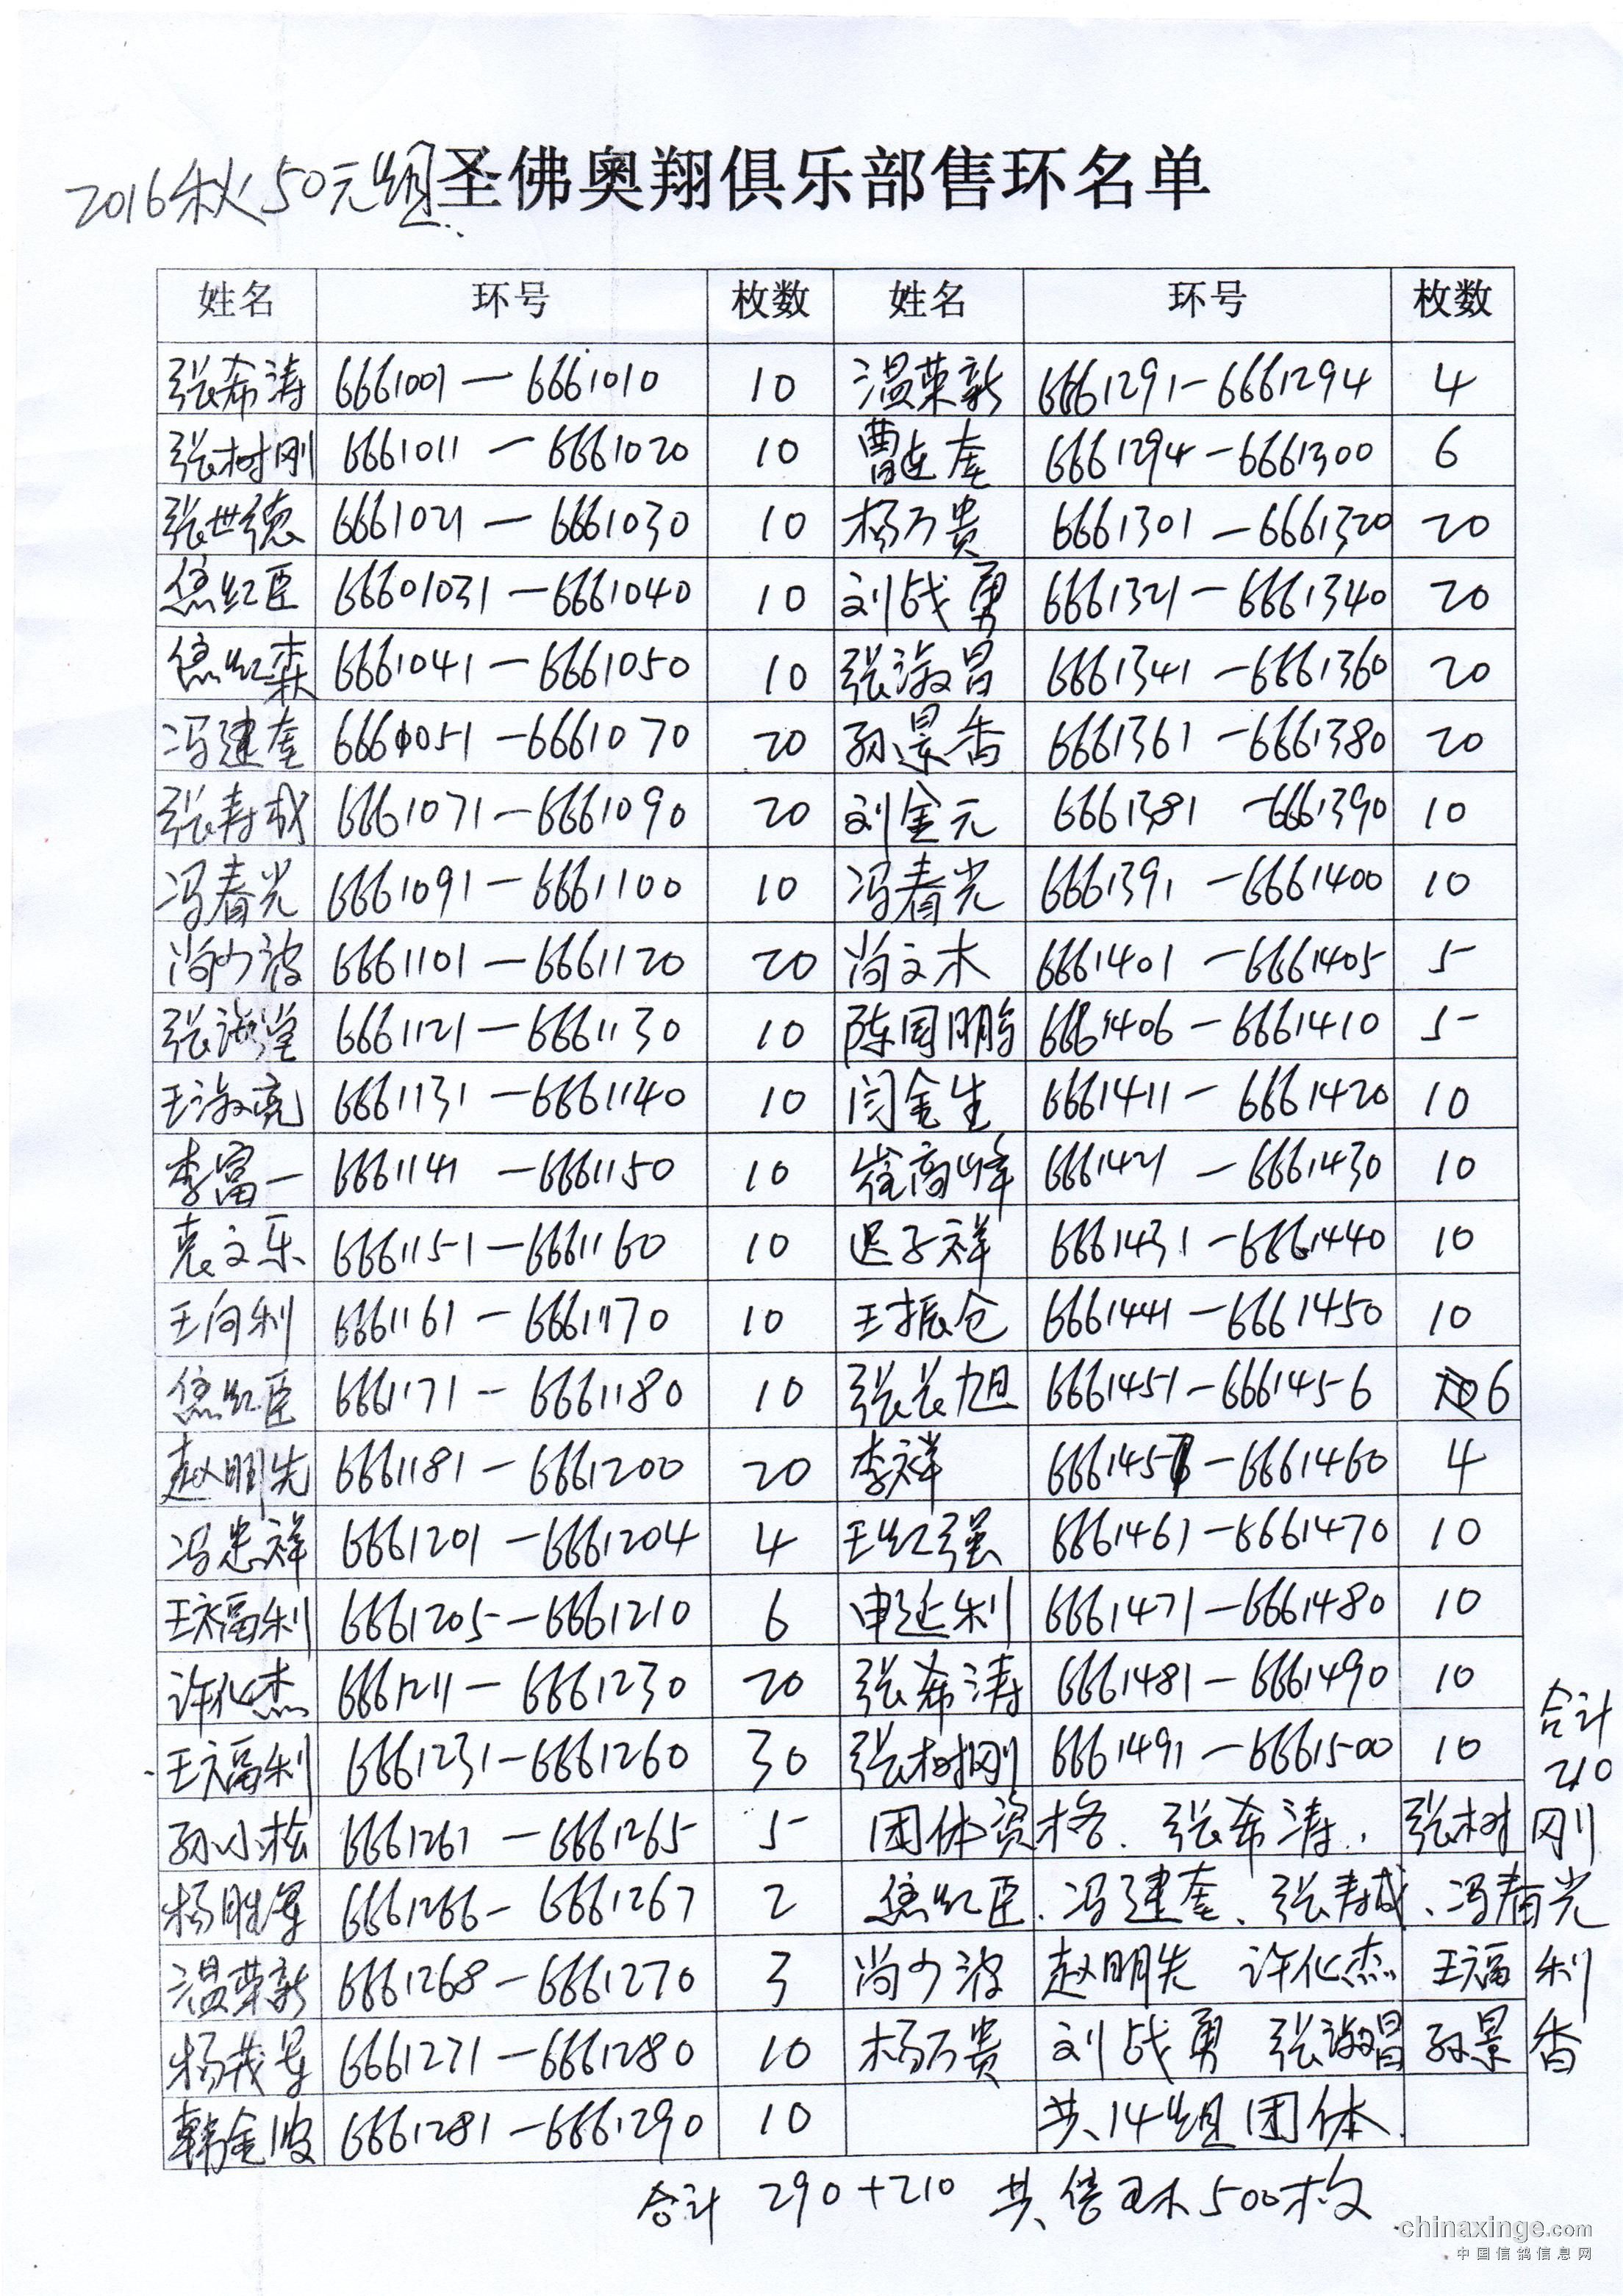 2016秋50元组 圣佛奥翔俱乐部售环名单
姓名 环号 枚数 姓名 环号 枚数
张希涛 6661001—6661010 10 温荣新 6661291—6661294 4
张树刚 6661011—6661020 10 曹连奎 6661294—6661300 6
张世德 6661021—6661030 10 杨万贵 6661301—6661320 20
焦红臣 66601031—6661040 10 刘战勇 6661321—6661340 20
焦红森 6661041—6661050 10 张淑昌 6661341—6661360 20
冯建奎 6661051—6661070 20 孙景香 6661361—6661380 20
张寿城 6661071—6661090 20 刘金元 6661381 —6661390 10
冯春光 6661091—6661100 10 冯春光 6661391—6661400 10
尚少波 6661101—6661120 20 尚文木 6661401—6661405 5
张淑堂 6661121—6661130 10 陈国鹏 6661406—6661410 5
王淑亮 6661131—6661140 10 闫金生 6661411—6661420 10
李富一 6661141—6661150 10 崔高峰 6661421—6661430 10
袁文乐 6661151—6661160 10 迟子祥 6661431—6661440 10
王向利 6661161—6661170 10 王振仓 6661441—6661450 10
焦红臣 6661171—6661180 10 张长旭 6661451—6661456 6
赵明先 6661181—6661200 20 李祥 6661457—6661460 4
冯忠祥 6661201—6661204 4 王红强 6661461—6661470 10
王福利 6661205—6661210 6 申延利 6661471—6661480 10
许化杰 6661211—6661230 20 张希涛 6661481—6661490 10
王福利 6661231—6661260 30 张树刚 6661491—6661500 10
合计
210
孙小松 6661261—6661265 5 团体资格.张希涛.张树刚
杨胜军 6661266—6661267 2 焦红臣.冯建奎、张寿城、冯春光
温荣新 6661268—6661270 3 尚少波 赵明先 许化杰 王福利
杨茂军 6661271—6661280 10 杨万贵 刘战勇 张淑昌 孙景香
韩金波 6661281—6661290 10 共14组团体.
合计 290+210 共售环500枚
chinaxinge.com
中国信鸽信息网